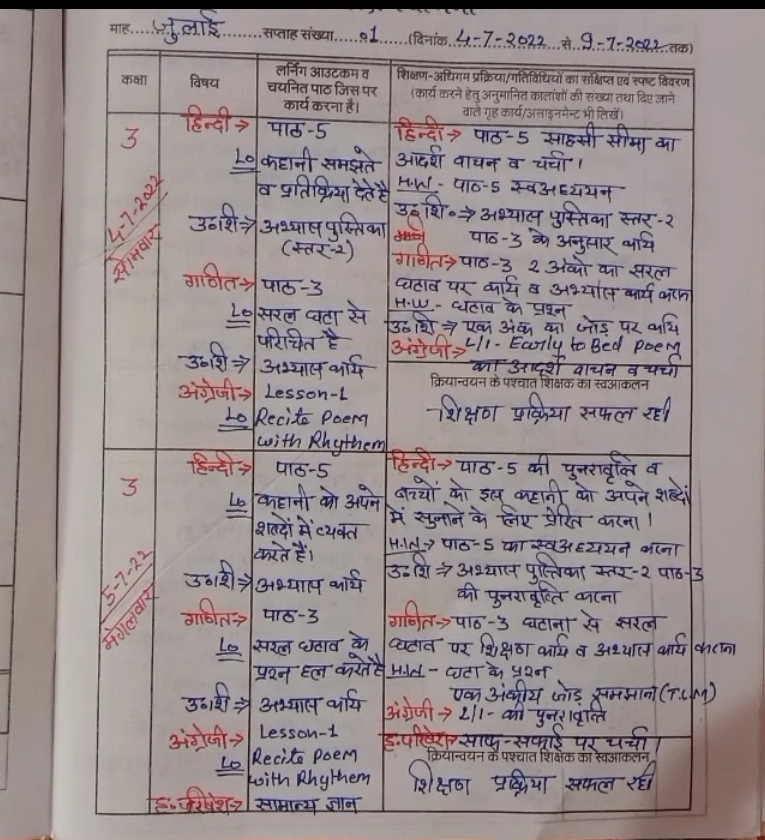 माह....जुलाई..........सप्ताह संख्या.....01......(दिनांक 4-7-2022 से 9-7-2022 तक)
कक्षा
विषय
लर्निंग आउटकम व
चयनित पाठ जिस पर
कार्य करना है।
शिक्षण-अधिगम प्रक्रिया/गतिविधियों का संक्षिप्त एवं स्पष्ट विवरण
(कार्य करने हेतु अनुमानित कालांशों की संख्या तथा दिए जाने
वाले गृह कार्य/असाइनमेन्ट भी लिखें)
3
4-7-2022
सोमवार
हिन्दी → पाठ-5
Lo कहानी समझते
व प्रतिक्रिया देते है
उ०शि → अभ्यास पुस्तिका
(स्तर-2)
गणित → पाठ-3
Lo सरल घटा से
परिचित है
उ०शि → अभ्यास कार्य
अंग्रेजी → Lesson-1
Lo Recite Poem
with Rhythem
हिन्दी → पाठ-5 साहसी सीमा का
आदर्श वाचन व चर्चा।
H.W.- पाठ-5 स्वअध्ययन
उ०शि० → अभ्यास पुस्तिका स्तर-2
पाठ-3 के अनुसार कार्य
गणित → पाठ-3 2 अंको का सरल
घटाव पर कार्य व अभ्यास कार्य कराना
H.W.- घटाव के प्रश्न
उ०शि → एक अंक का जोड़ पर कार्य
अंग्रेजी → L/1- Early to Bed poem
का आदर्श वाचन व चर्चा
क्रियान्वयन के पश्चात शिक्षक का स्वआकलन
-शिक्षण प्रक्रिया सफल रही
3
5-7-22
मंगलवार
हिन्दी → पाठ-5
Lo कहानी को अपने
शब्दों में व्यक्त
करते हैं।
उ०शि → अभ्यास कार्य
गणित → पाठ-3
Lo सरल घटाव के
प्रश्न हल करते है
उ०शि → अभ्यास कार्य
अंग्रेजी → Lesson-1
Lo Recite Poem
with Rhythem
ह०परिवेश → सामान्य ज्ञान
हिन्दी → पाठ-5 की पुनरावृत्ति व
बच्चों को इस कहानी को अपने शब्दों
में सुनाने के लिए प्रेरित करना।
H.W → पाठ-5 का स्वअध्ययन करना
उ०शि → अभ्यास पुस्तिका स्तर-2 पाठ-3
की पुनरावृत्ति करना
गणित → पाठ-3 घटाना से सरल
घटाव पर शिक्षण कार्य व अभ्यास कार्य कराना
H.W - घटा के प्रश्न
एक अंकीय जोड़ समझाना (T.L.M)
अंग्रेजी → L/1- की पुनरावृत्ति
ह०परिवेश → साफ-सफाई पर चर्चा।
क्रियान्वयन के पश्चात शिक्षक का स्वआकलन
शिक्षण प्रक्रिया सफल रही